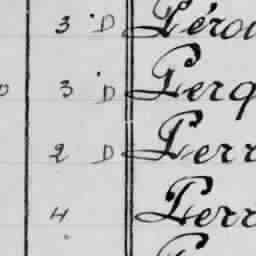 3 D Péro
3 D Perq
2 D Perr
4 Perr